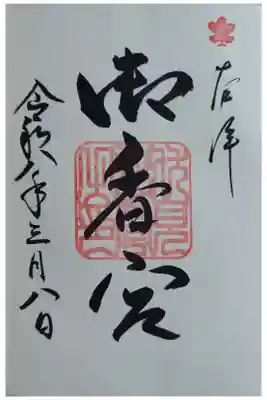 奉拝
御香宮
令和八年三月八日